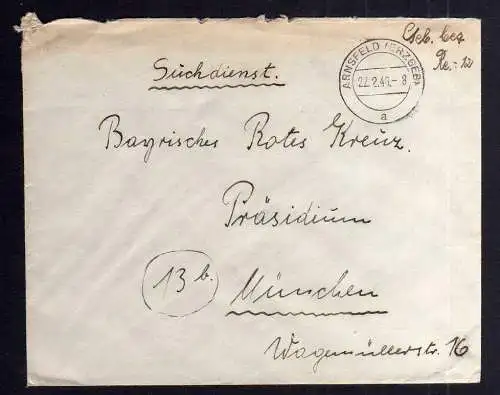 Geb. bez
Suchdienst.
ARNSFELD (ERZGEB)
22.2.46.-8
a
Bayrisches Rotes Kreuz.
Präsidium
13 b.
München
Wagemüllerstr. 16